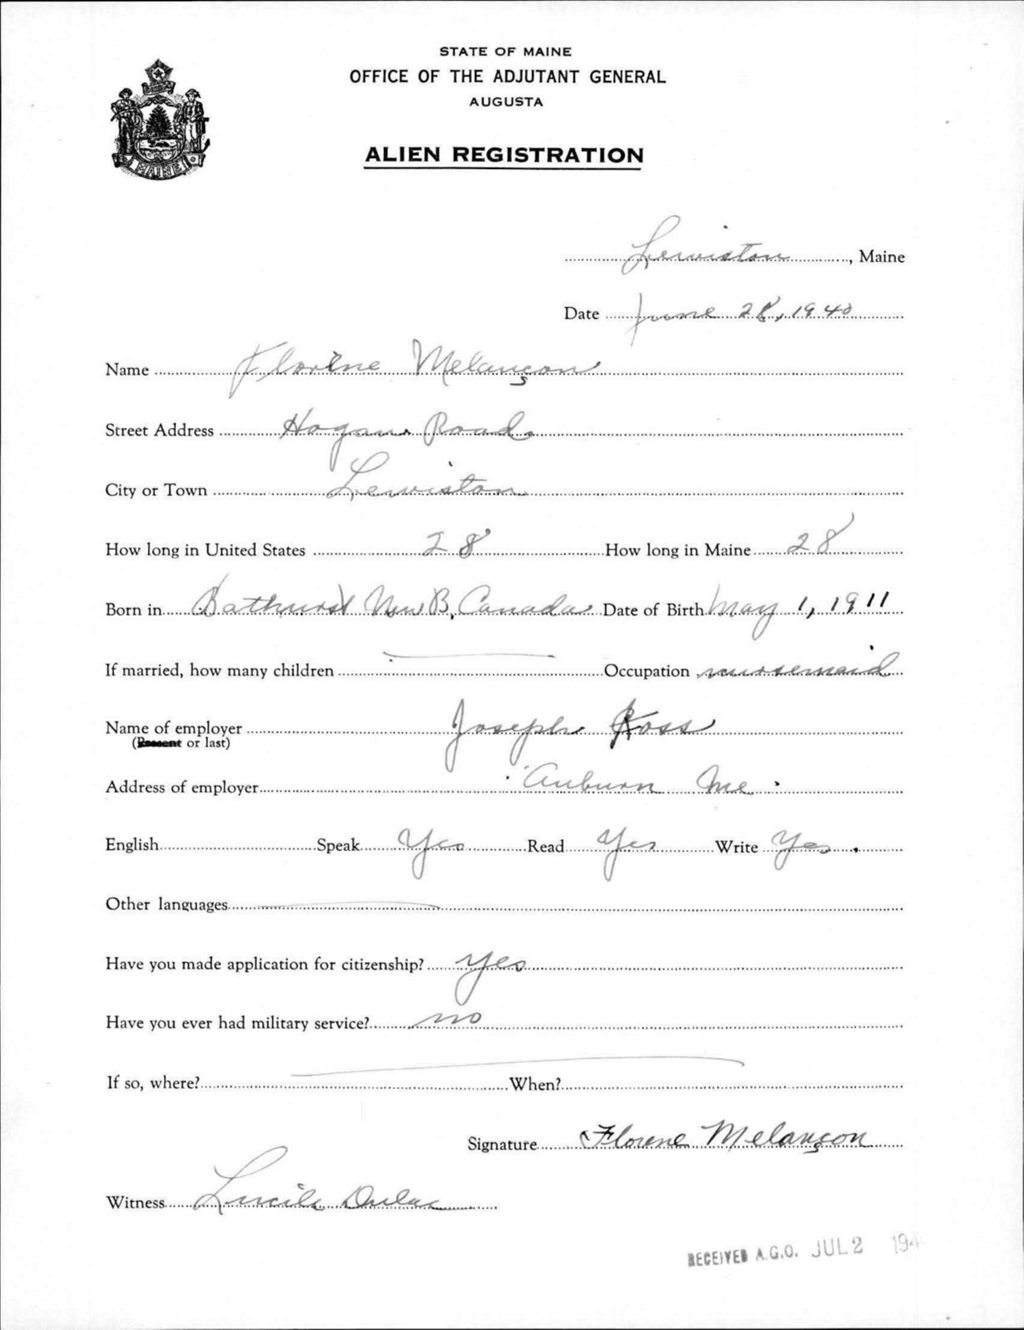 STATE OF MAINE
OFFICE OF THE ADJUTANT GENERAL
AUGUSTA
ALIEN REGISTRATION
MAINE
Lewiston, Maine
Date June 28, 1940
Name Florene Melançon
Street Address Hogan Road
City or Town Lewiston
How long in United States 28 How long in Maine 28
Born in Bathurst New B, Canada Date of Birth May 1, 1911
If married, how many children — Occupation nursemaid
Name of employer Joseph Ross
(Present or last)
Address of employer Auburn Me.
English Speak Yes Read Yes Write Yes.
Other languages —
Have you made application for citizenship? yes
Have you ever had military service? no
If so, where? — When?
Signature Florene Melançon
Witness Lucile Dulac
RECEIVED A.G.O. JUL 2 194